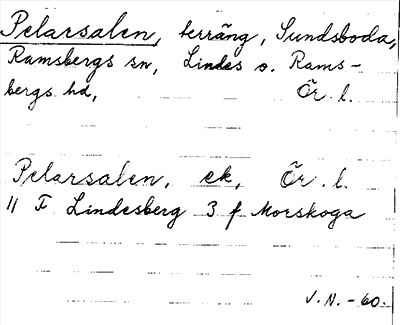 Pelarsalen, terräng, Sundsboda,
Ramsbergs sn, Lindes o. Rams-
bergs hd, Ör. l.
Pelarsalen, ek, Ör. l.
11 F Lindesberg 3 f Morskoga
V.N. -60.